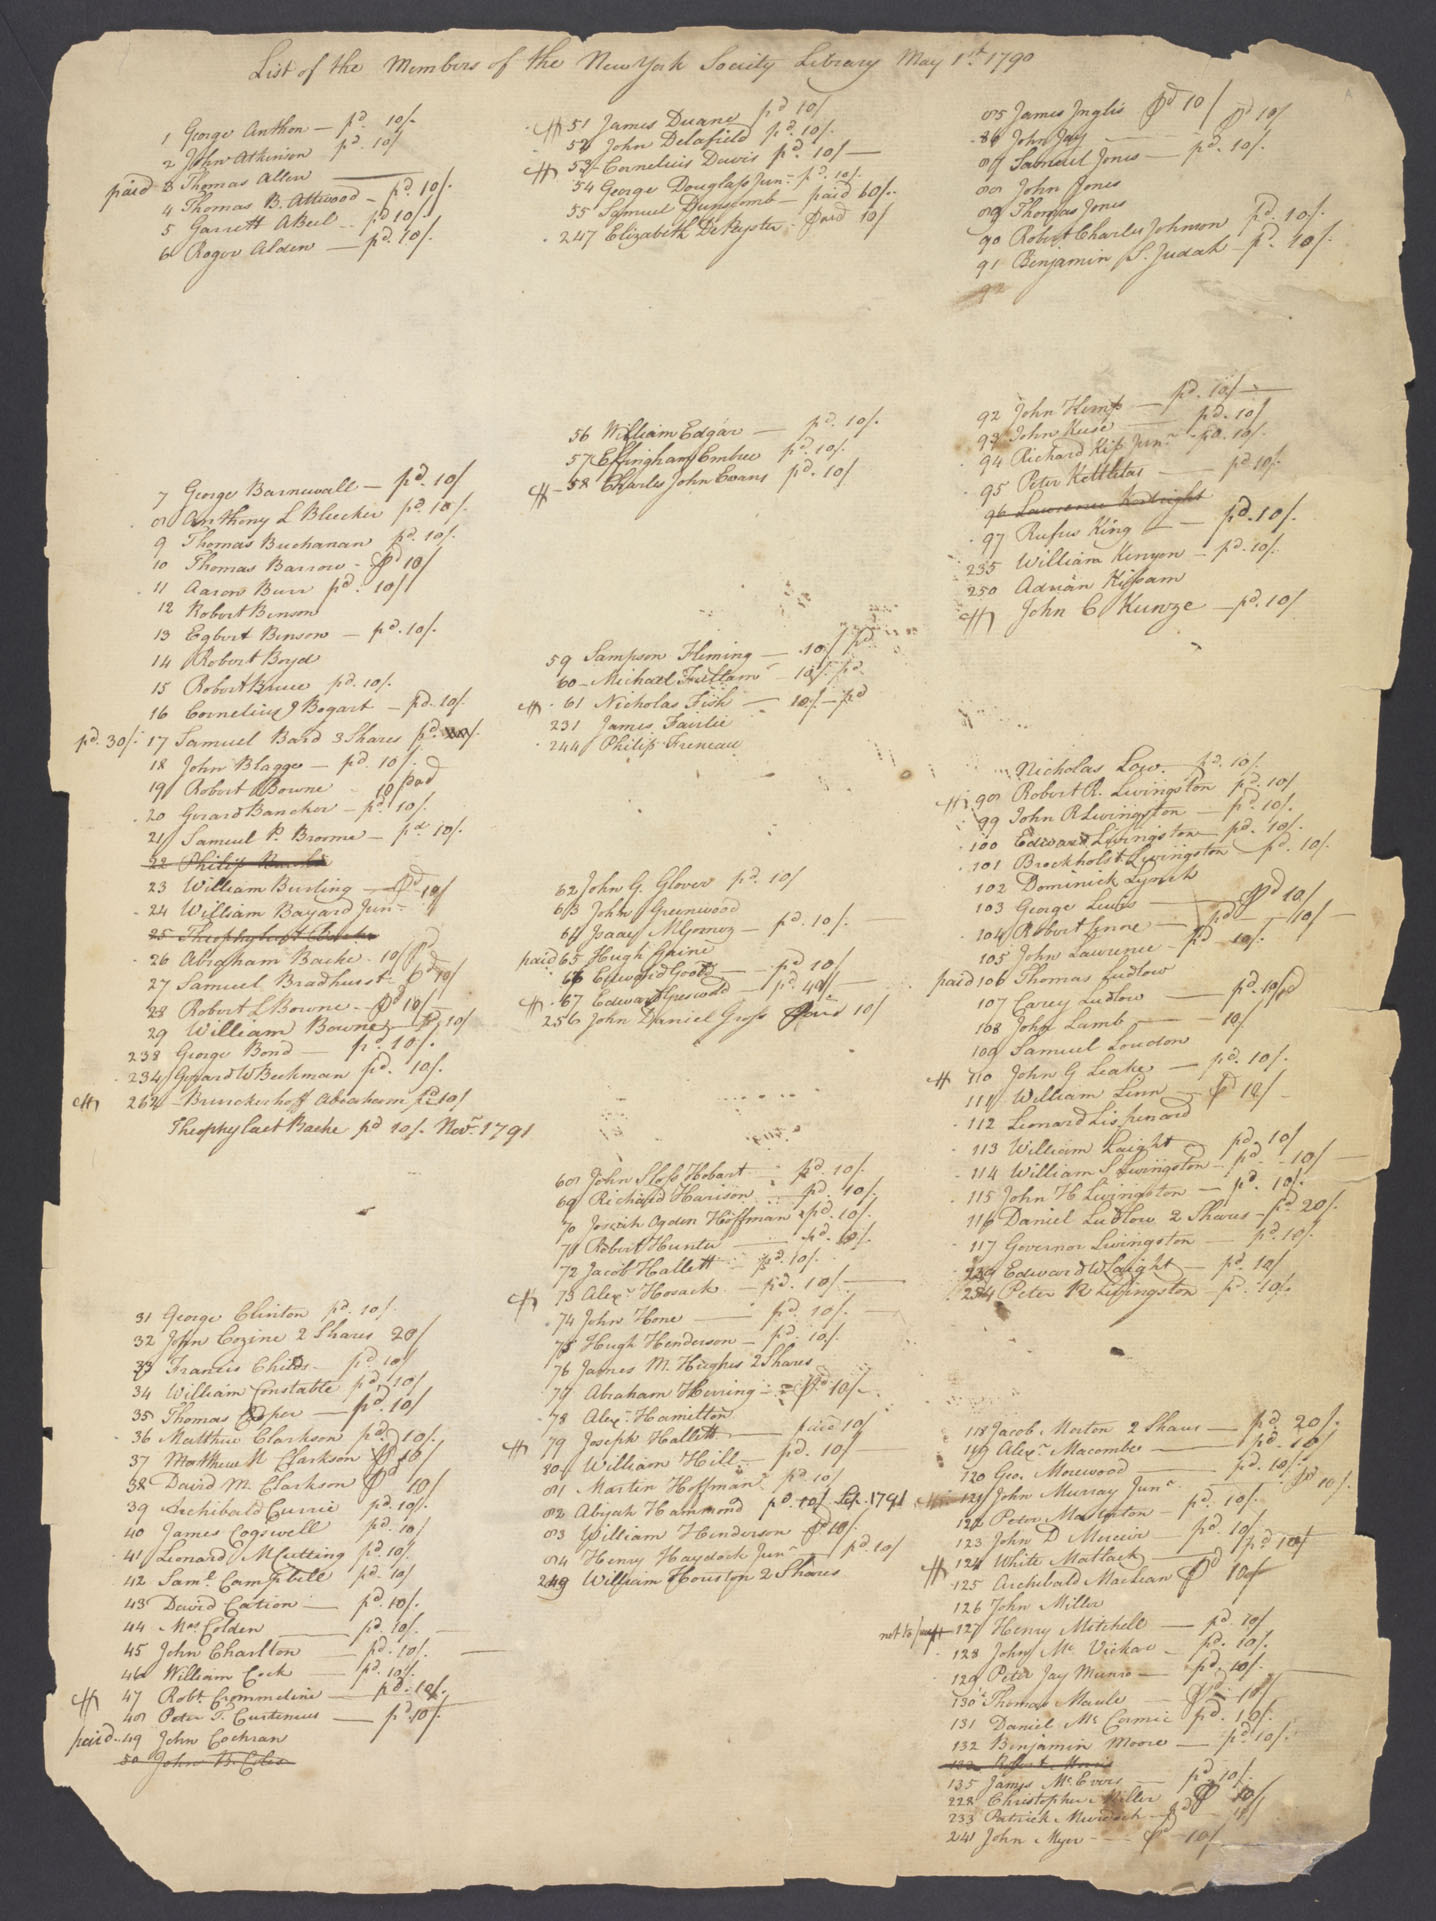 List of the Members of the New York Society Library May 1st 1790
1 George Anthon — pd. 10/.
2 John Atkinson pd. 10/
paid 3 Thomas Allen
4 Thomas B. Attwood — pd. 10/.
5 Garrett Abeel - pd 10/
6 Roger Alden — pd. 10/.
7 George Barnewall — pd. 10/
8 Anthony L Bleecker pd. 10/.
9 Thomas Buchanan pd. 10/.
10 Thomas Barrow - pd 10/
11 Aaron Burr pd. 10/
12 Robert Benson
13 Egbert Benson — pd. 10/.
14 Robert Boyd
15 Robert Bruce pd. 10/.
16 Cornelius J Bogart — pd. 10/.
pd. 30/. 17 Samuel Bard 3 Shares pd.
18 John Blagge — pd. 10/.
19 Robert Bowne 10 pad
20 Gerard Bancker — pd. 10/.
21 Samuel P. Broome — pd. 10/.
22 Philip
23 William Burling — pd 10/
24 William Bayard Junr
25 Theophylact Bache
26 Abraham Bache. 10/ pd
27 Samuel Bradhurst - pd 10/
28 Robert L Bowne - pd 10/
29 William Bowne — pd 10/
238 George Bond — pd. 10/.
234 Gerard W Beekman pd. 10/.
262 Brinckerhoff Abraham pd 10/
Theophylact Bache pd 10/. Novr 1791
31 George Clinton pd. 10/.
32 John Cozine 2 Shares 20/
33 Francis Childs — pd 10/
34 William Constable pd. 10/
35 Thomas Cooper — pd. 10/
36 Matthew Clarkson pd. 10/.
37 Matthew M Clarkson pd 10/
38 David M. Clarkson pd 10/
39 Archibald Currie pd. 10/.
40 James Cogswell pd. 10/
41 Leonard M Cutting pd. 10/
42 Saml. Campbell pd. 10/
43 David Cation — pd. 10/.
44 Mrs Colden — pd. 10/. —
45 John Charlton — pd. 10/. —
46 William Cock — pd. 10/.
47 Robt. Crommeline — pd. 10/.
48 Peter T. Curtenius — pd. 10/.
paid 49 John Cochran
50 John B. Coles
51 James Duane pd 10/
52 John Delafield pd. 10/.
53 Cornelius Davis pd. 10/ —
54 George Douglass Junr pd. 10/.
55 Samuel Dunscomb — paid 60/.
247 Elizabeth DePeyster - paid 10/
56 William Edgar — pd. 10/.
57 Effingham Embree pd. 10/.
58 Charles John Evans pd. 10/
59 Sampson Fleming — 10/ pd.
60 Michael Fultam — 10/. pd.
61 Nicholas Fish — 10/. — pd
231 James Fairlie
244 Philip Freneau
62 John G. Glover pd. 10/
63 John Greenwood
64 Isaac M Gomez — pd. 10/.
paid 65 Hugh Gaine
66 Edward Goold — pd 10/
67 Edward Greswold — pd. 40/
256 John Daniel Gross paid 10/
68 John Sloss Hobart — pd. 10/.
69 Richard Harison pd. 10/.
70 Josiah Ogden Hoffman pd. 10/.
71 Robert Hunter — pd. 10/.
72 Jacob Hallett - pd. 10/.
73 Alexr Hosack — pd. 10/ —
74 John Hone — pd. 10/. —
75 Hugh Henderson — pd. 10/.
76 James M. Hughes 2 Shares
77 Abraham Herring — pd 10/
78 Alexr Hamilton
79 Joseph Hallett — paid 10/
80 William Hill — pd. 10/
81 Martin Hoffman pd. 10/
82 Abijah Hammond pd. 10/ Sep. 1791
83 William Henderson pd 10/.
84 Henry Haydock Junr — pd. 10/
249 William Houston 2 Shares
85 James Inglis pd 10/
86 John Jay — pd 10/
87 Samuel Jones — pd. 10/.
88 John Jones
89 Thomas Jones
90 Robert Charles Johnson pd. 10/.
91 Benjamin S. Judah - pd. 10/.
92
92 John Kemp — pd. 10/ —
93 John Keese — pd. 10/
94 Richard Kip Junr - pd. 10/.
95 Peter Kettletas — pd 10/.
96 Lawrence Kortright
97 Rufus King — pd. 10/.
235 William Kenyon — pd. 10/.
250 Adrian Kissam
John C Kunze — pd. 10/
Nicholas Low. pd. 10/.
98 Robert R. Livingston pd. 10/
99 John R Livingston — pd. 10/.
100 Edward Livingston — pd. 10/.
101 Brockholst Livingston pd. 10/.
102 Dominick Lynch
103 George Ludlow — pd 10/
104 Robert Lenox — pd — 10/ —
105 John Lawrence - pd 10/.
paid 106 Thomas Ludlow
107 Carey Ludlow — pd. 10/
108 John Lamb — 10/
109 Samuel Loudon
110 John G Leake — pd. 10/.
111 William Linn — pd 10/
112 Leonard Lispenard
113 William Laight pd. 10/
114 William S Livingston — pd. 10/ —
115 John H Livingston — pd. 10/.
116 Daniel Ludlow 2 Shares - pd. 20/.
117 Governor Livingston — pd. 10/.
Edward W Laight — pd. 10/
254 Peter R Livingston — pd. 10/.
118 Jacob Morton 2 Shares — pd. 20/.
119 Alexr Macombe — pd. 10/
120 Geo. Morewood — pd. 10/.
121 John Murray Junr — pd 10/.
122 Peter Masterton — pd. 10/.
123 John D Mercier — pd. 10/
124 White Matlack — pd 10/
125 Archibald MacLean pd 10/
126 John Miller
127 Henry Mitchell — pd. 10/
128 John Mc Vickar — pd. 10/.
129 Peter Jay Munro — pd. 10/.
130 Thomas Maule — pd 10/
131 Daniel Mc Cormic pd. 10/.
132 Benjamin Moore — pd. 10/.
135 James Mc Evers — pd. 10/.
228 Christopher Miller pd 10/
233 Patrick Murdock — pd 10/
241 John Myer — pd 10/